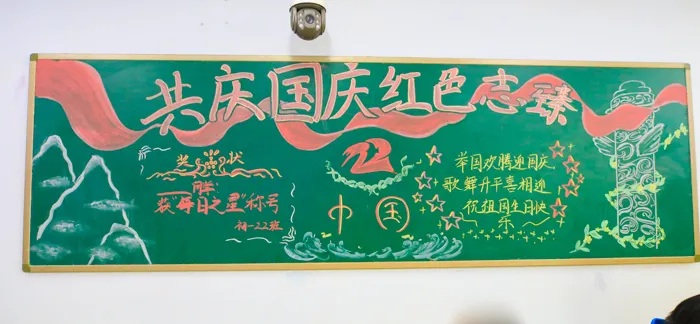 共庆国庆红色志臻
奖状
同学:
获"每日之星"称号
初一22班
22
中国
举国欢腾迎国庆
歌舞升平喜相迎
优祖国生日快
乐